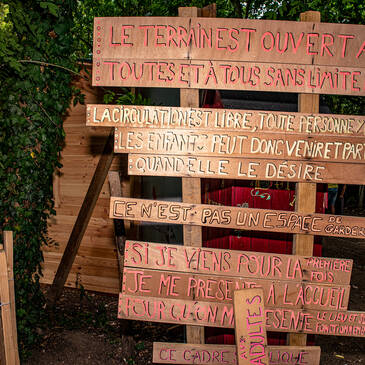 LE TERRAIN EST OUVERT À
TOUTES ET À TOUS SANS LIMITE
LA CIRCULATION EST LIBRE, TOUTE PERSONNE Y
LES ENFANTS PEUT DONC VENIR ET PART
QUAND ELLE LE DÉSIRE
CE N'EST PAS UN ESPACE DE GARDER
SI JE VIENS POUR LA PREMIÈRE FOIS
JE ME PRÉSENTE À L'ACCUEIL
POUR QU'ON ME PRÉSENTE LE LIEU ET
FONCTION
CE CADRE S'APPLIQUE
ADULTES